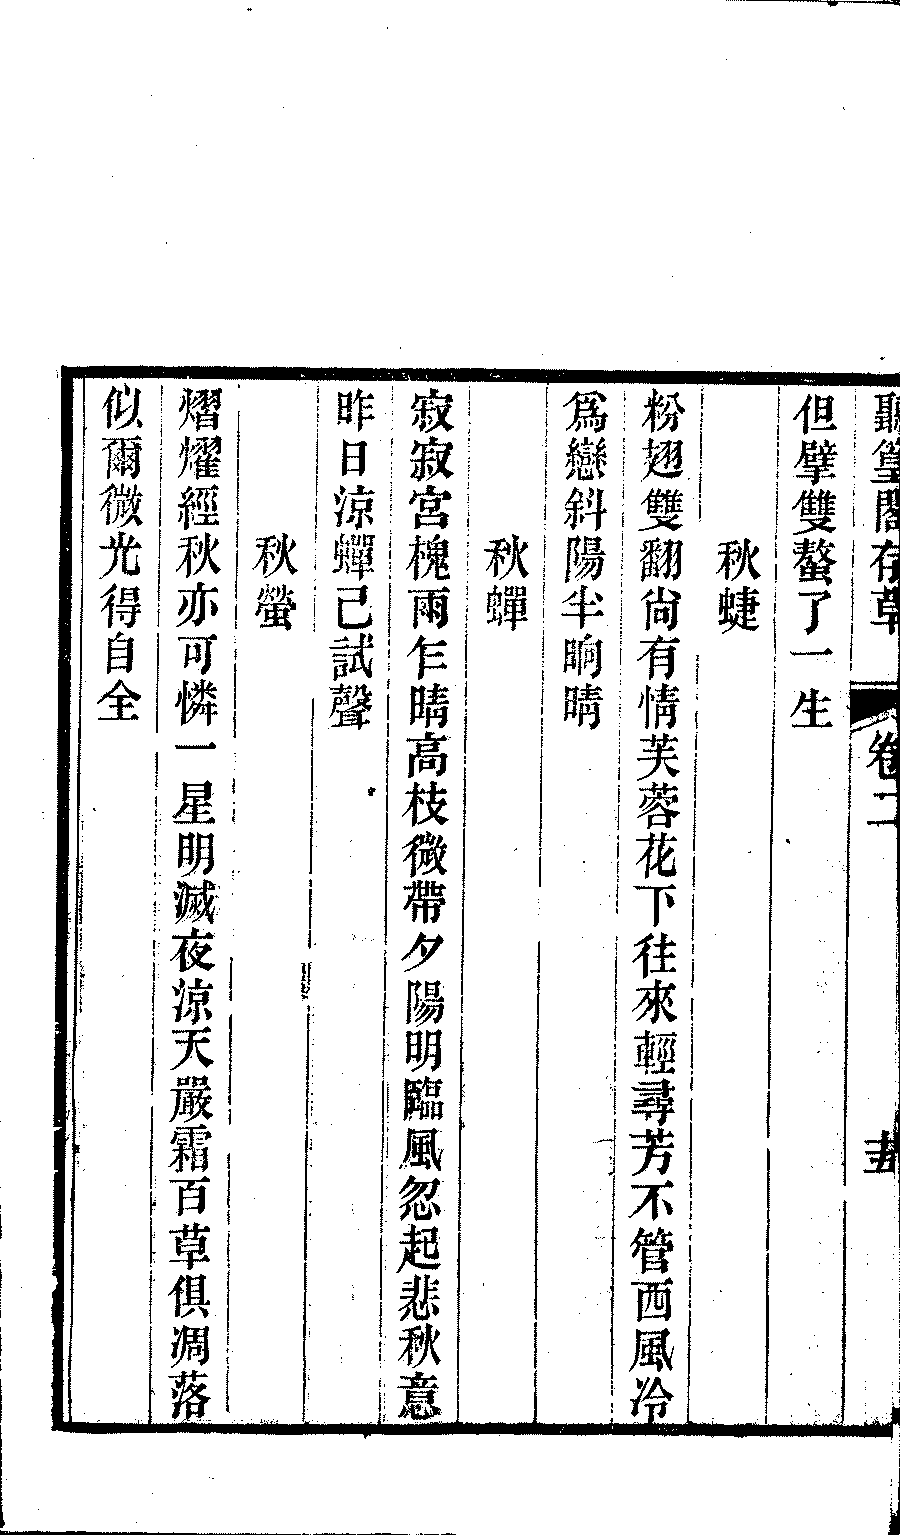 聽篁閣存草 卷二
但擘雙螯了一生
秋蜨
粉翅雙翻尙有情芙蓉花下往來輕尋芳不管西風冷
爲戀斜陽半晌晴
秋蟬
寂寂宮槐雨乍晴高枝微帶夕陽明臨風忽起悲秋意
昨日涼蟬已試聲
秋螢
熠燿經秋亦可憐一星明滅夜涼天嚴霜百草俱凋落
似爾微光得自全